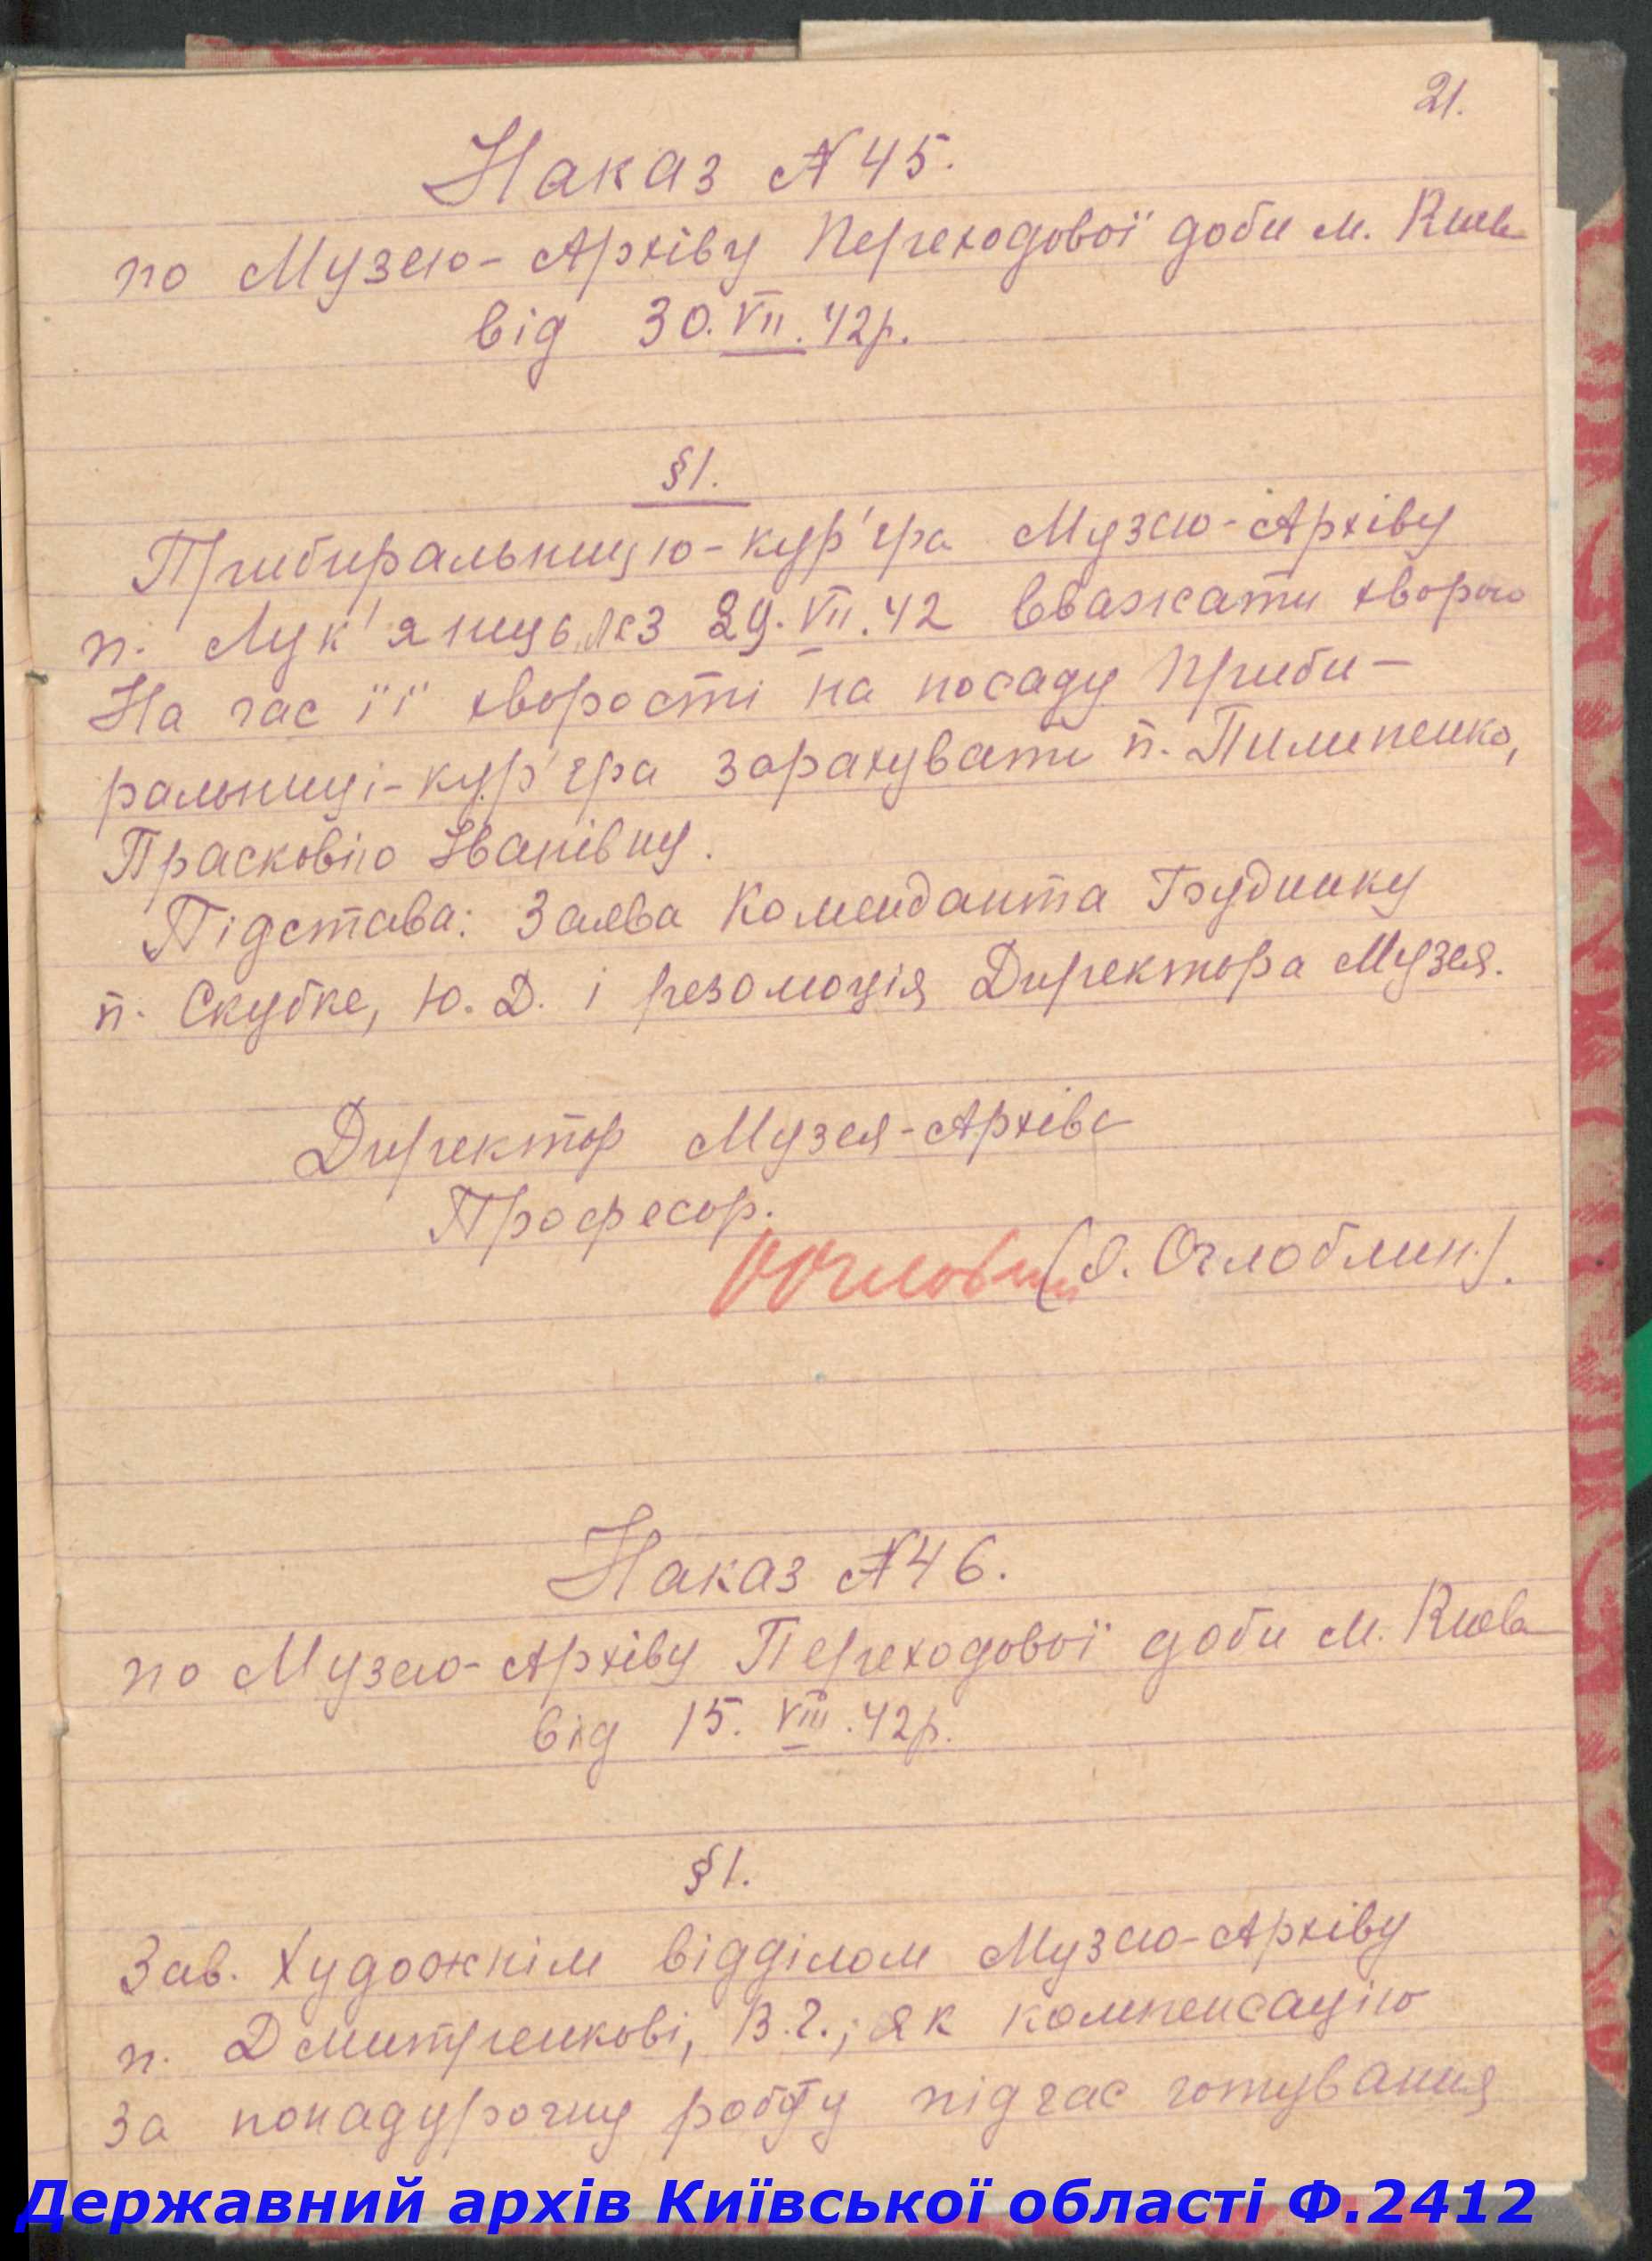 21.
Наказ №45.
по Музею-Архіву Переходової доби м. Києва
від 30.VII.42р.
§1.
Прибиральницю-кур'єра Музею-Архіву
п. Лук'янець з 29.VII.42 вважати хворою
На час її хворості на посаду приби-
ральниці-кур'єра зарахувати п. Пилипенко,
Прасковію Іванівну.
Підстава: Заява Коменданта Будинку
п. Скубке, Ю. Д. і резолюція Директора Музея.
Директор Музея-Архіва
Професор.
(О. Оглоблин).
Наказ №46.
по Музею-Архіву Переходової доби м. Києва
від 15.VIII.42р.
§1.
Зав. Художнім відділом Музею-Архіву
п. Дмитренкові, В. Г., як компенсацію
за понадурочну роботу підчас готування
Державний архів Київської області Ф.2412